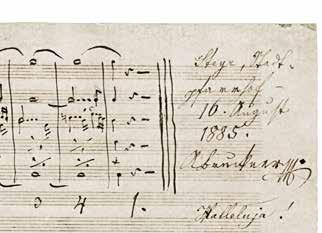 Steyr, Stadt-
pfarrhof –
16. August
1885.
ABruckner
3 4 1.
Halleluja!